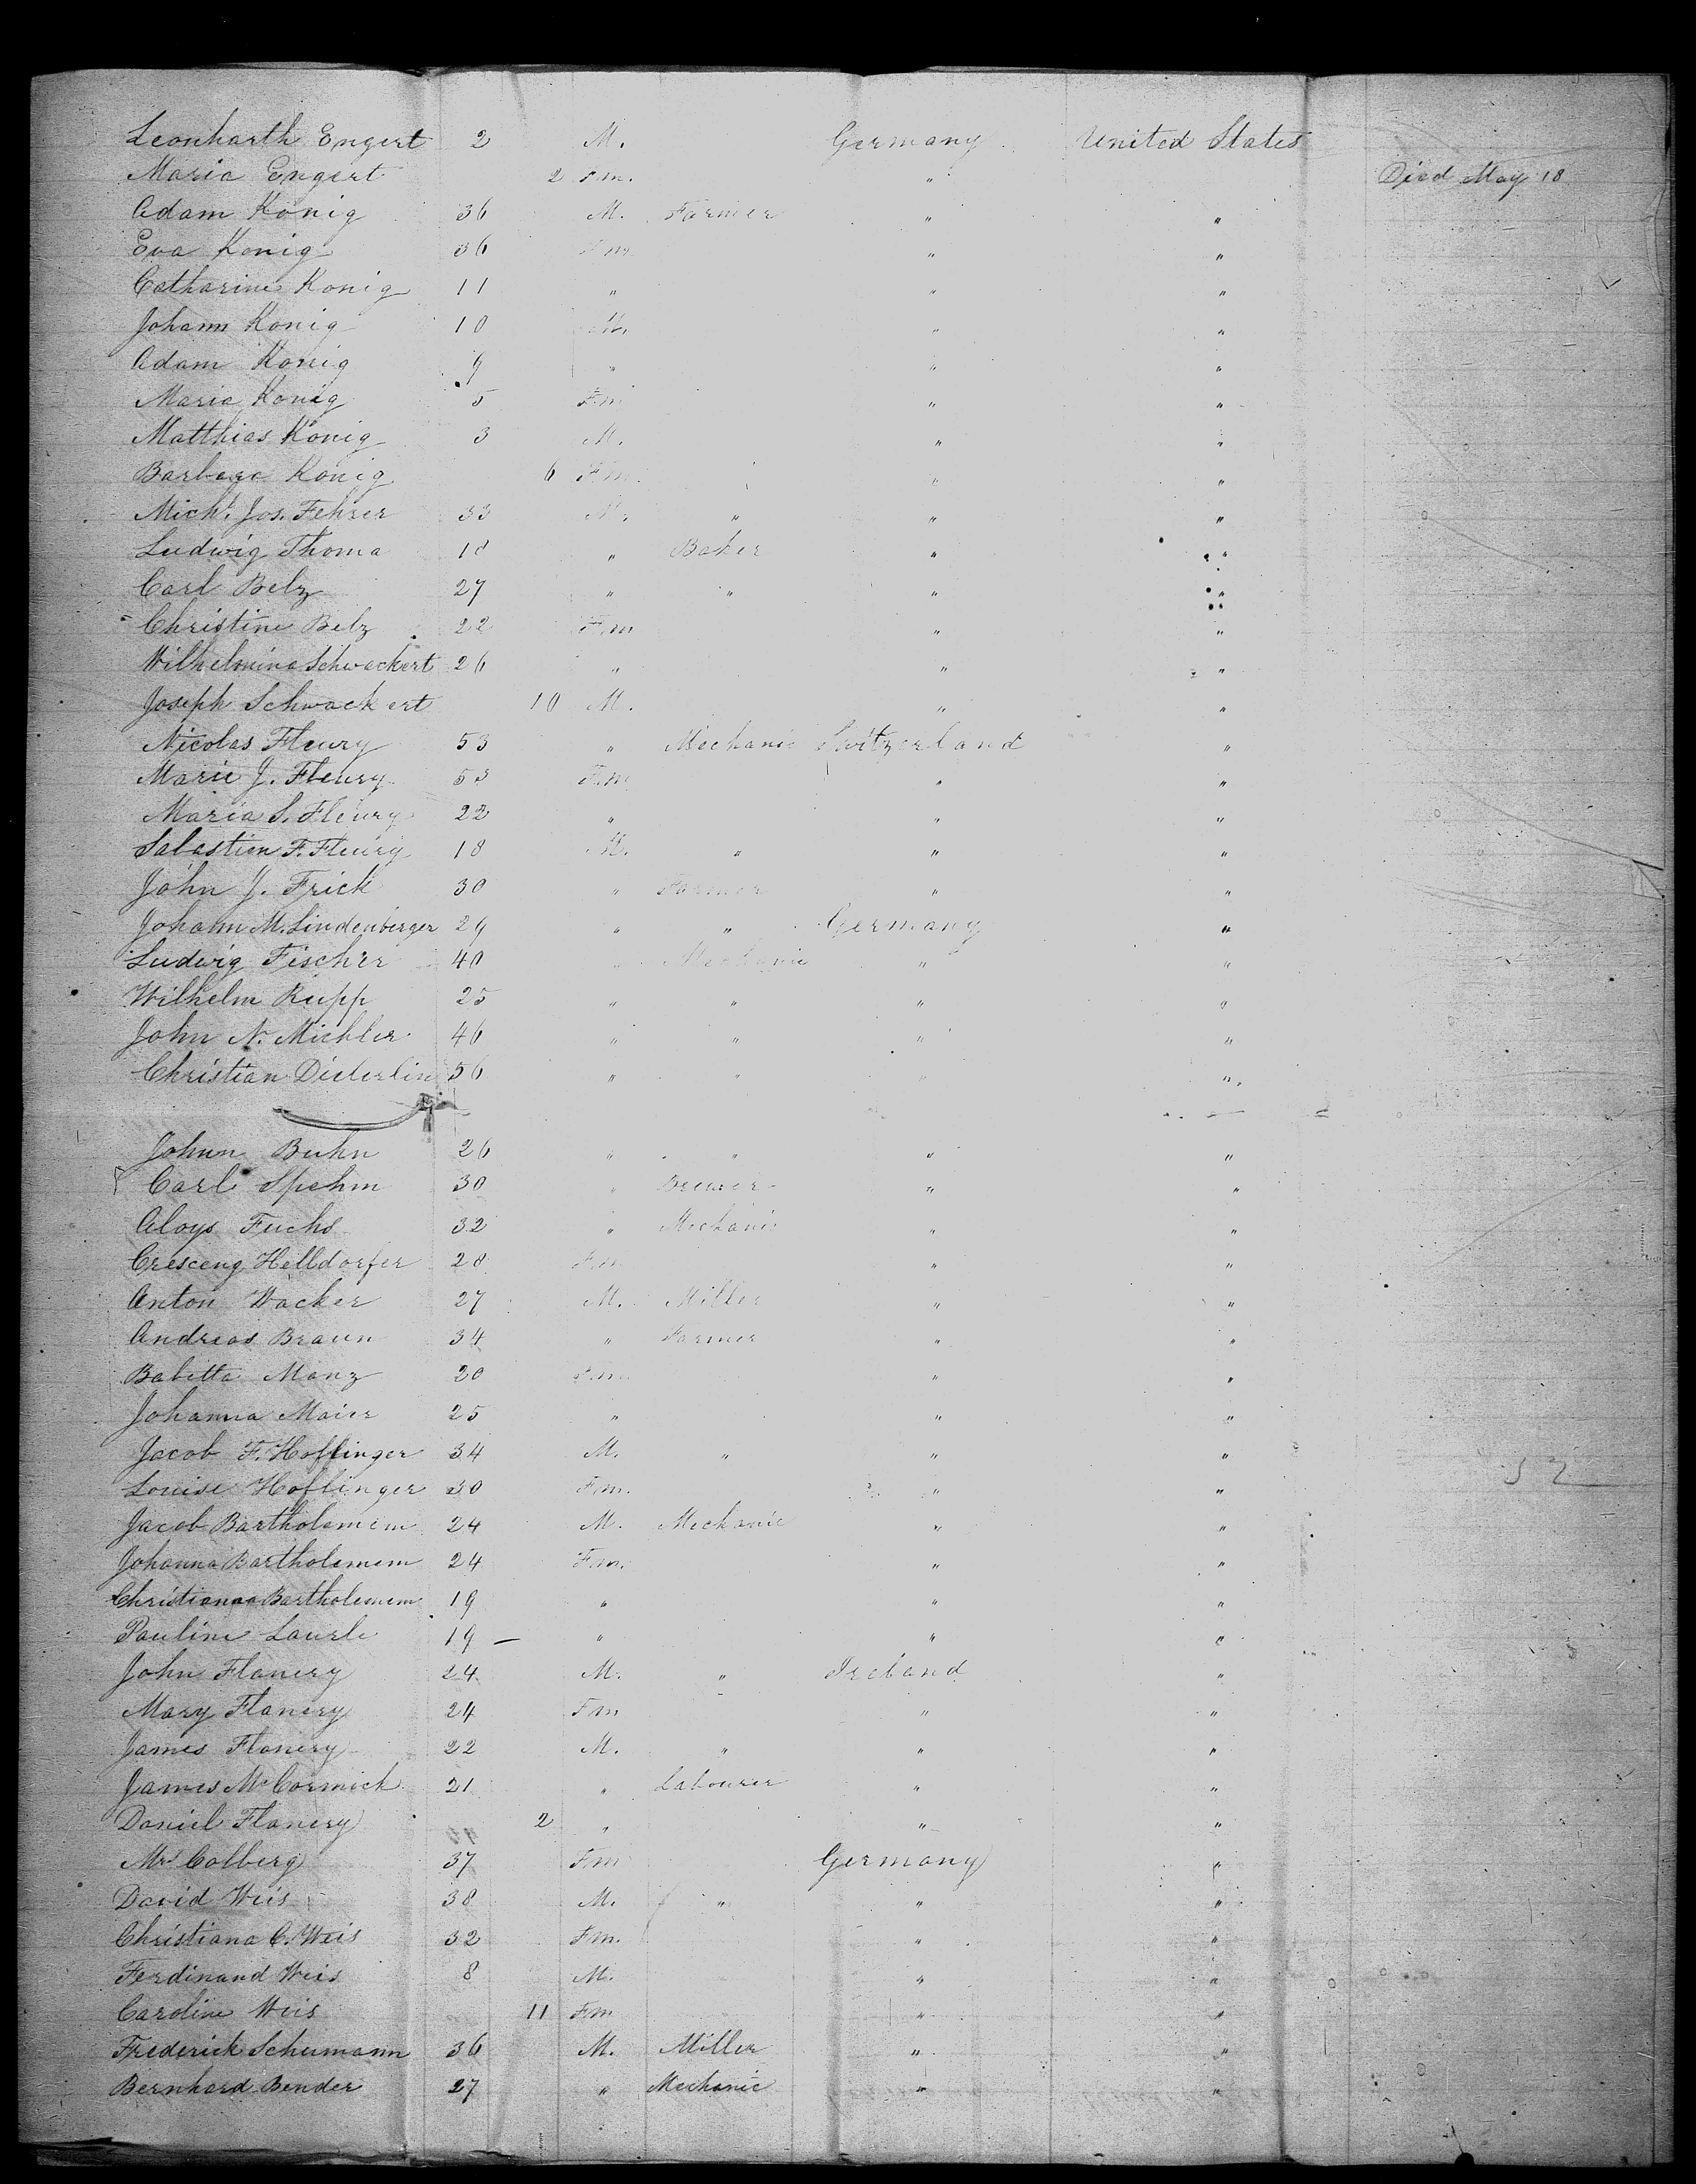 Leonharth Engert 2 M. Germany United States
Maria Engert 2 Fm. " Died May 18
Adam König 36 M. Farmer " "
Eva Konig 36 Fm. " "
Catharine Konig 11 " " "
Johann Konig 10 M. " "
Adam Konig 9 " " "
Maria Konig 5 Fm " "
Matthias König 3 M. " "
Barbara Konig 6 Fm. " "
Michl. Jos. Fehrer 33 M. " " "
Ludwig Thoma 18 " Baker " "
Carl Belz 27 " " " "
Christine Belz 22 Fm " "
Wilhelmina Schwackert 26 " " "
Joseph Schwackert 10 M. " "
Nicolas Fleury 53 " Mechanic Switzerland "
Marie J. Fleury 53 Fm. " "
Maria S. Fleury 22 " " "
Sabastien F. Fleury 18 M. " " "
John J. Frick 30 " Farmer " "
Johann M. Lindenberger 29 " " Germany "
Ludwig Fischer 40 " Mechanic " "
Wilhelm Rupp 25 " " " "
John N. Michler 46 " " " "
Christian Dieterlin 56 " " " "
Johnn Buhn 26 " " " "
Carl Spehm 30 " Brewer " "
Aloys Fuchs 32 " Mechanic " "
Cresceng Helldorfer 28 Fm " "
Anton Wacker 27 M. Miller " "
Andreas Braun 34 " Farmer " "
Babitta Manz 20 Fm. " "
Johanna Maier 25 " " "
Jacob F. Hoflinger 34 M. " " "
Louise Hoflinger 30 Fm. " "
Jacob Bartholemem 24 M. Mechanic " "
Johanna Bartholemem 24 Fm. " "
Christianaa Bartholemem 19 " " "
Pauline Laurle 19 " " "
John Flanery 24 M. " Ireland "
Mary Flanery 24 Fm " "
James Flanery 22 M. " " "
James McCormick 21 " Labourer " "
Daniel Flanery 2 " " "
Mrs Colberg 37 Fm Germany "
David Weis 38 M. " " "
Christiana C. Weis 32 Fm. " "
Ferdinand Weis 8 M. " "
Caroline Weis 11 Fm " "
Frederick Schumann 36 M. Miller " "
Bernhard Bender 27 " Mechanic " "
52